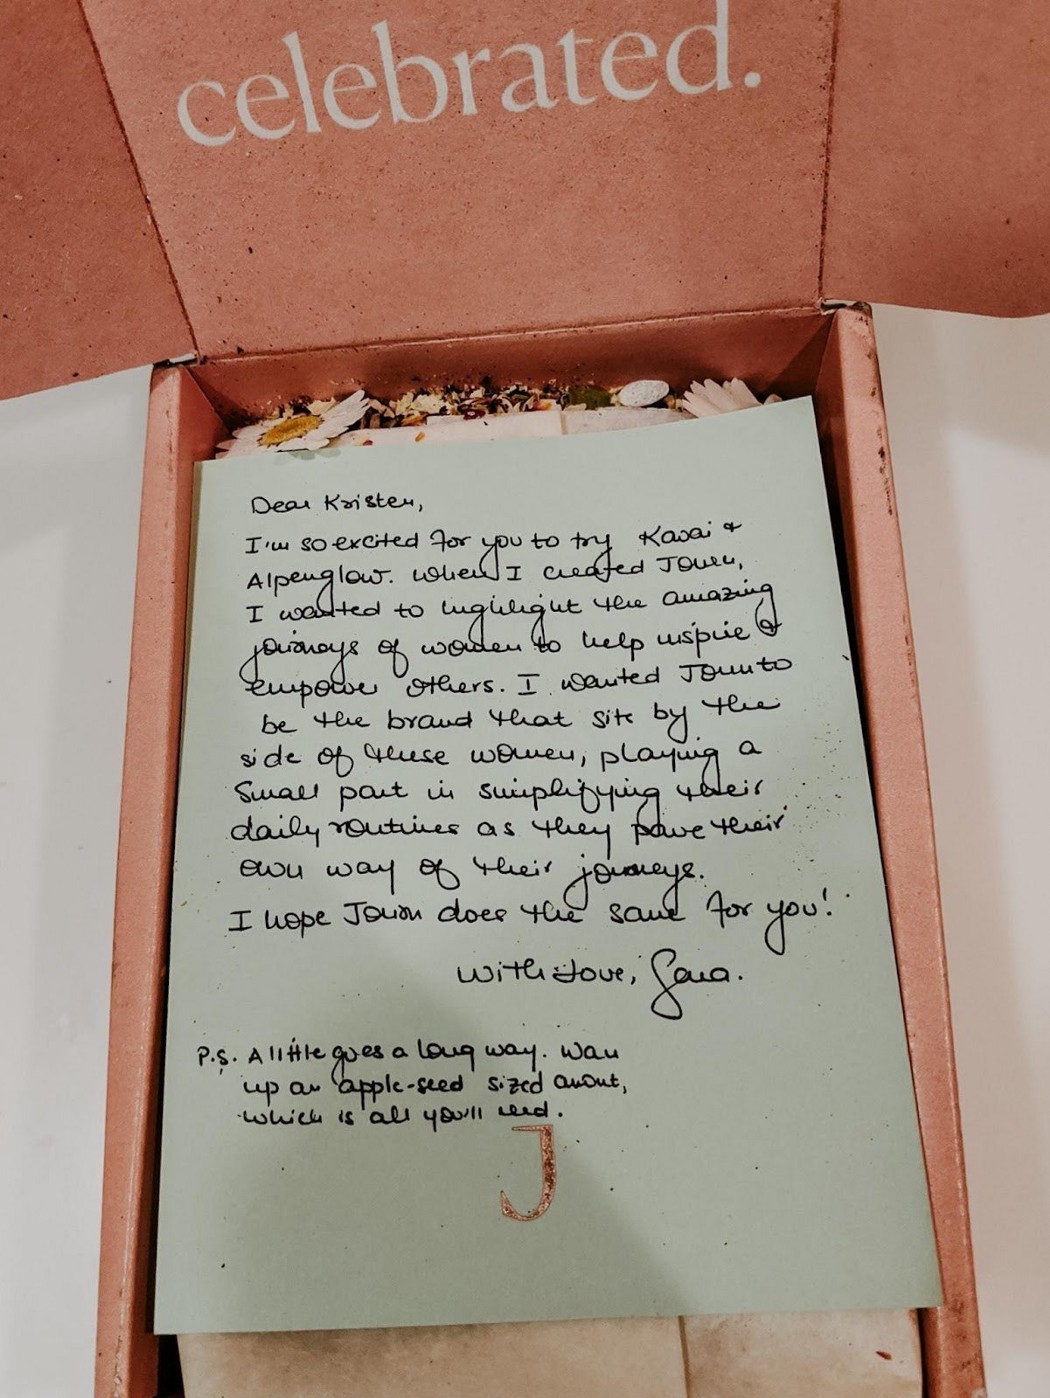 celebrated.
Dear Kristen,
I'm so excited for you to try Kavai &
Alpenglow. When I created Joven,
I wanted to highlight the amazing
journeys of women to help inspire &
empower others. I wanted Joun to
be the brand that sits by the
side of these women, playing a
small part in simplifying their
daily routines as they pave their
own way of their journeys.
I hope does the same for you!
With love, Sara.
P.S. A little goes a long way. Warm
up an apple-seed sized amount,
which is all you'll need.
J